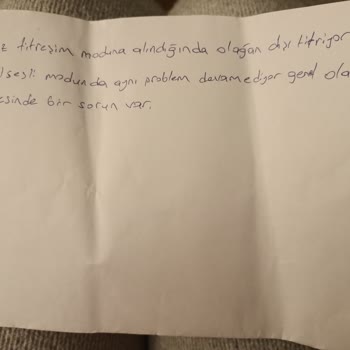 titreşim moduna alındığında olağan dışı titriyor
sesli modunda aynı problem devamediyor genel ola
sinde bir sorun var.